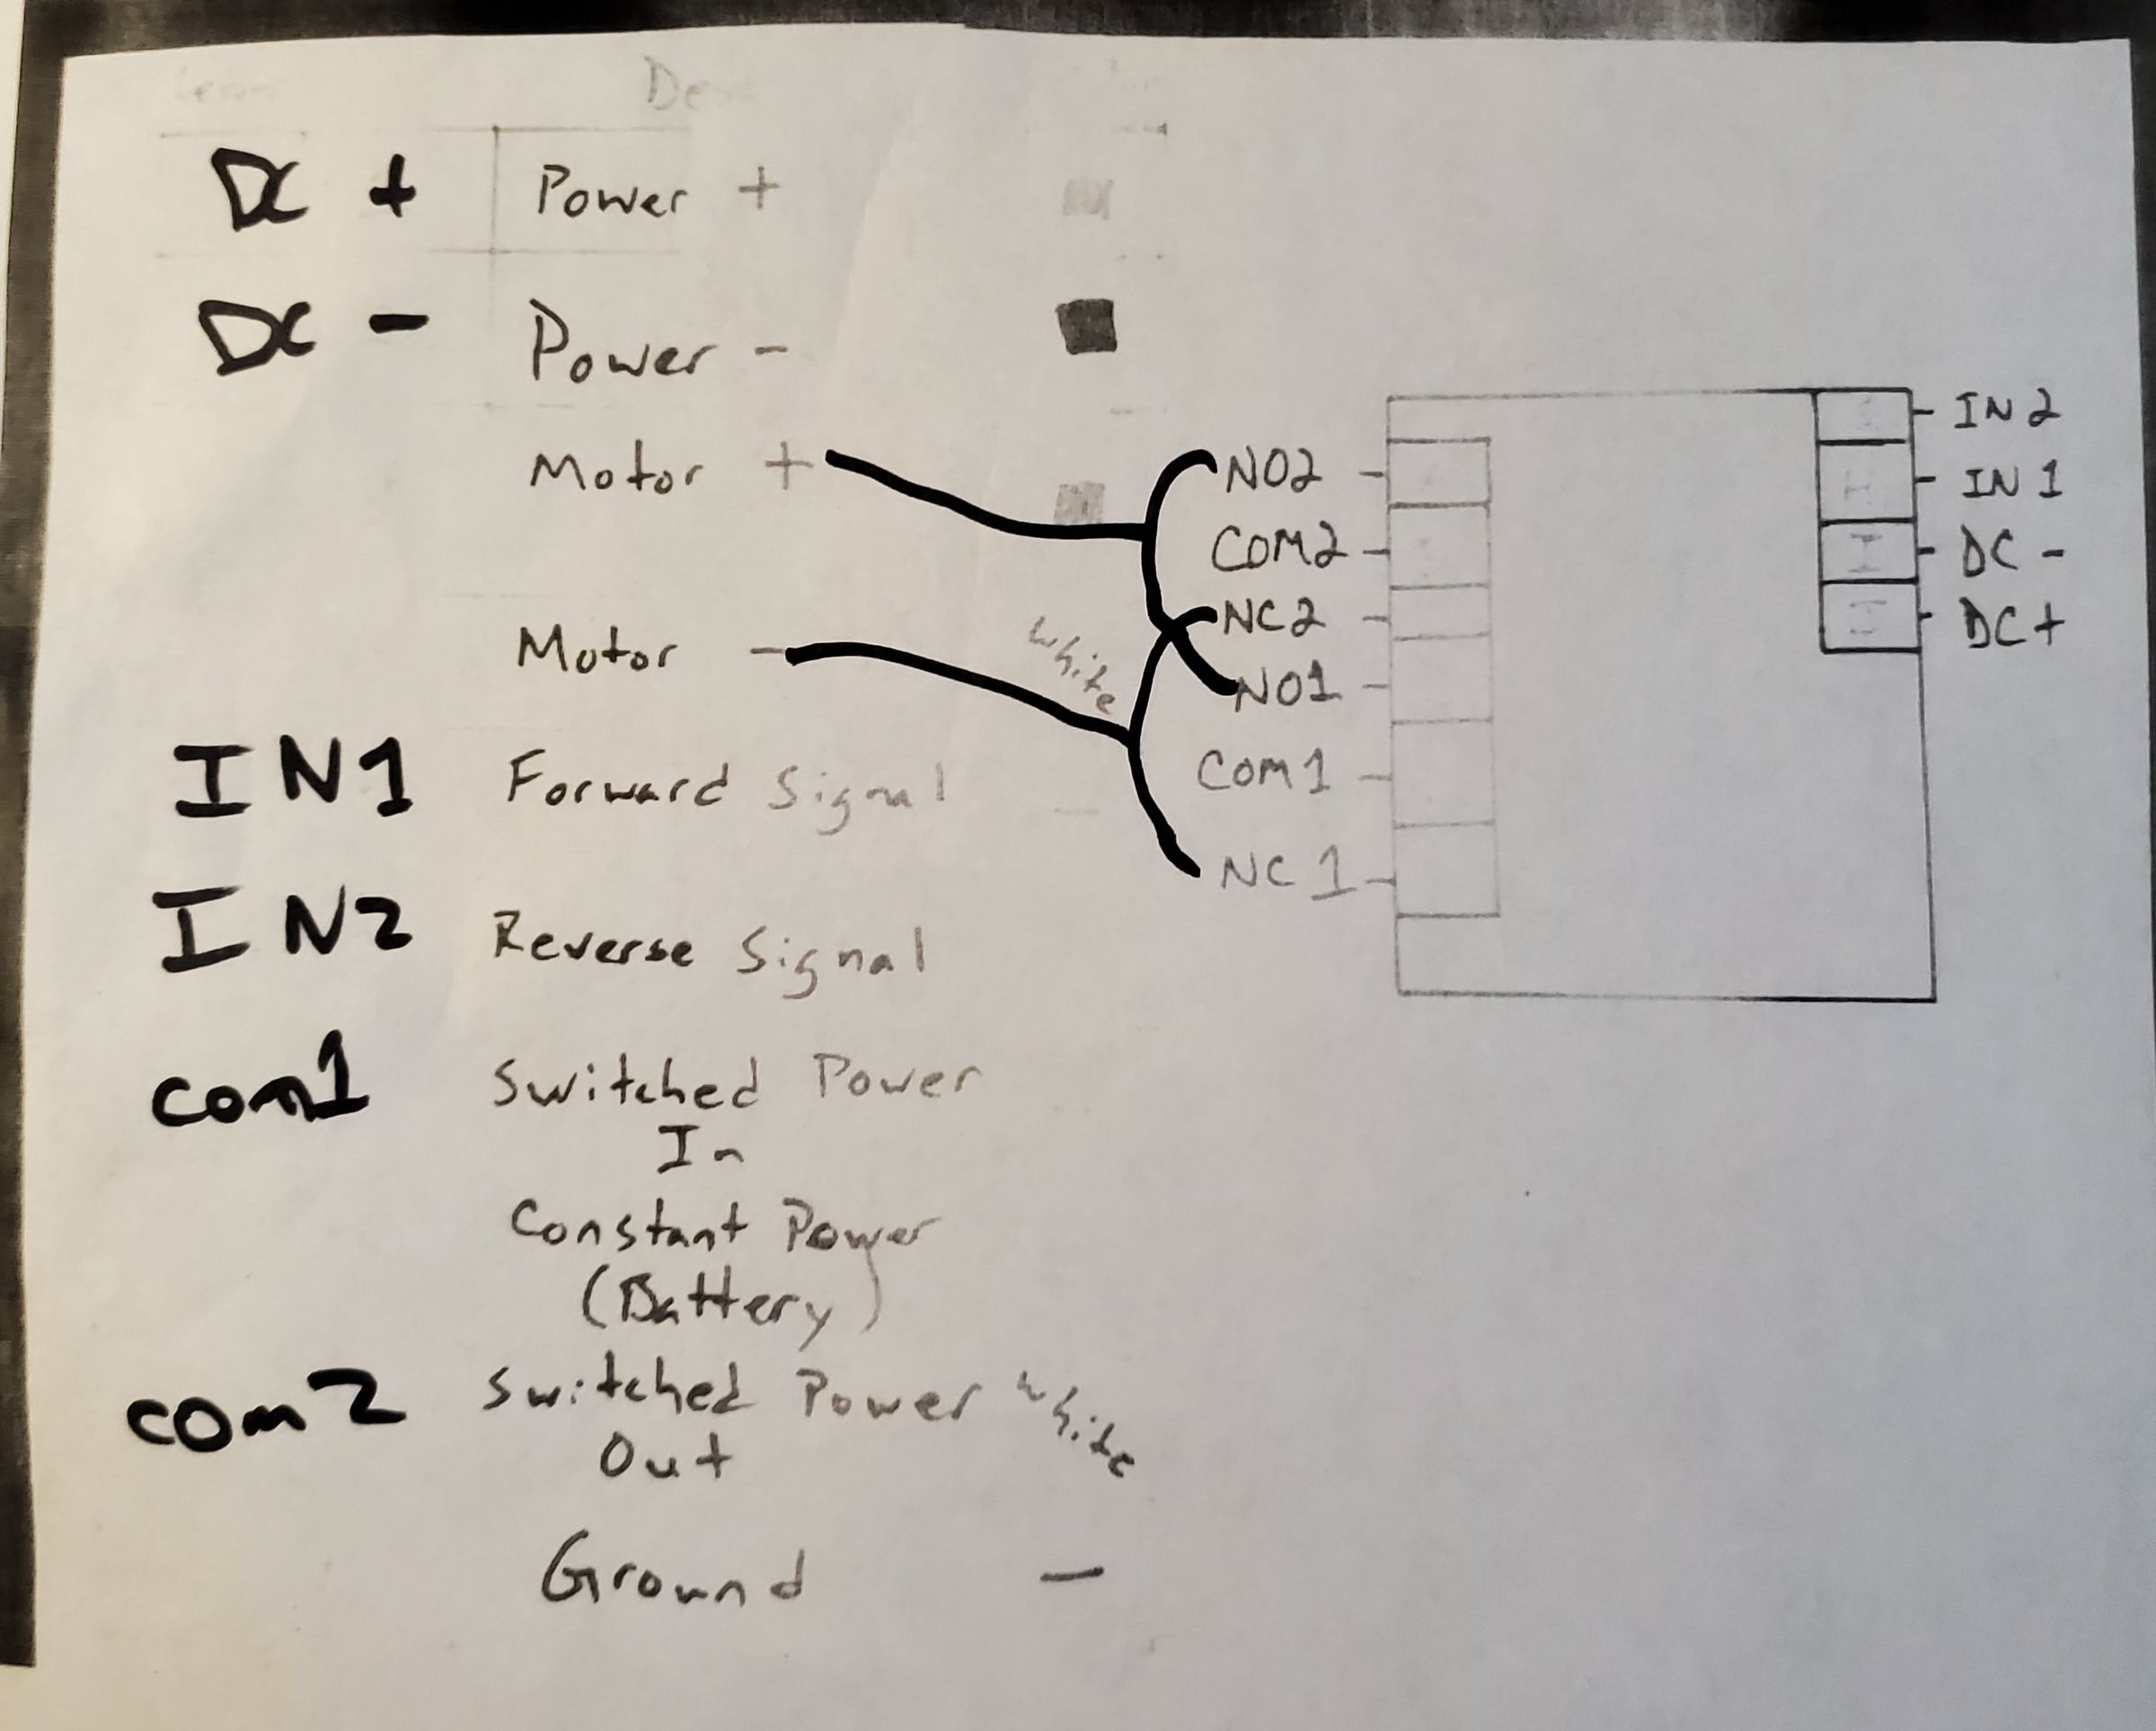 DC + Power +
DC - Power -
Motor +
Motor -
white
IN1 Forward Signal
IN2 Reverse Signal
com1 Switched Power
In
Constant Power
(Battery)
com2 Switched Power white
Out
Ground -
NO2
COM2
NC2
NO1
COM1
NC1
IN2
IN1
DC -
DC+